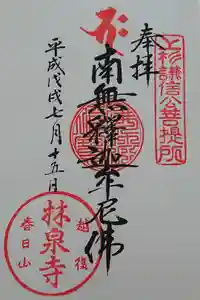 奉拝
上杉謙信公菩提所
南無釋迦牟尼佛
平成戊戌七月十五日
越後
林泉寺
春日山